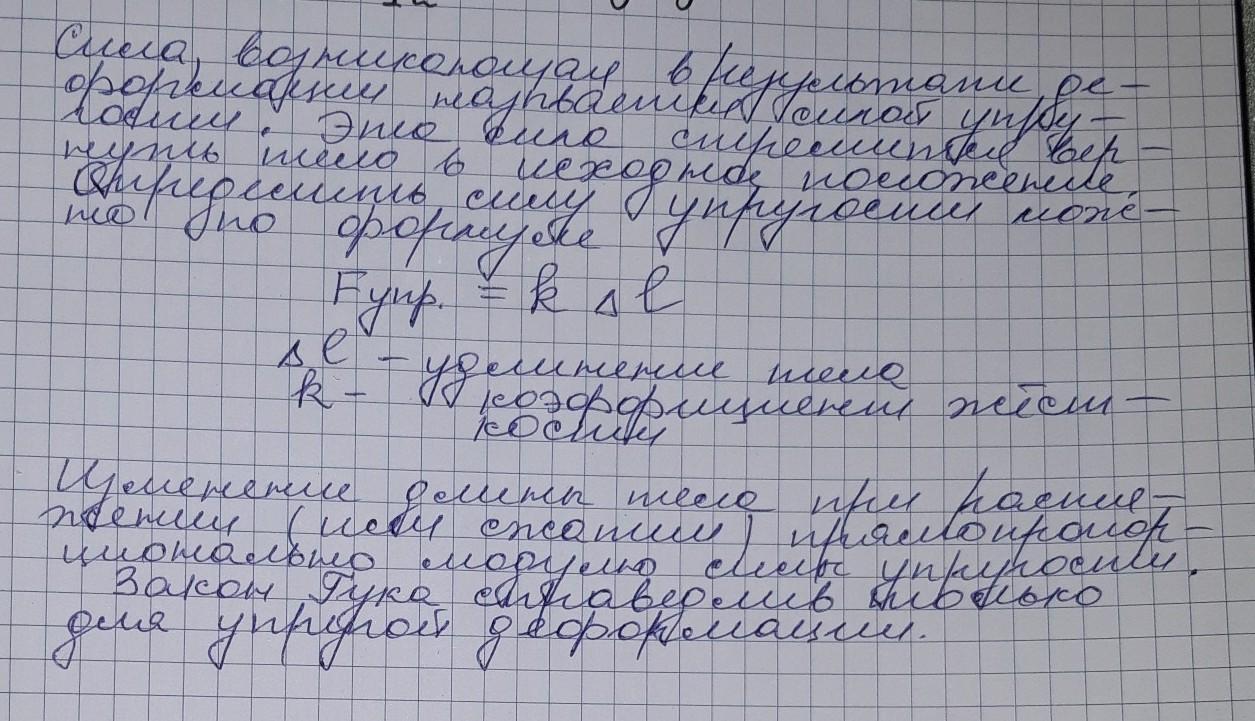 Сила, возникающая в результате де-
формации называется силой упру-
гости. Эта сила стремится вер-
нуть тело в исходное положение.
Определить силу упругости мож-
но по формуле
Fупр. = k Δl
Δl - удлинение тела
k - коэффициент жёст-
кости
Изменение длины тела при растя-
жении (или сжатии) прямопропор-
ционально модулю силы упругости.
Закон Гука справедлив только
для упругой деформации.